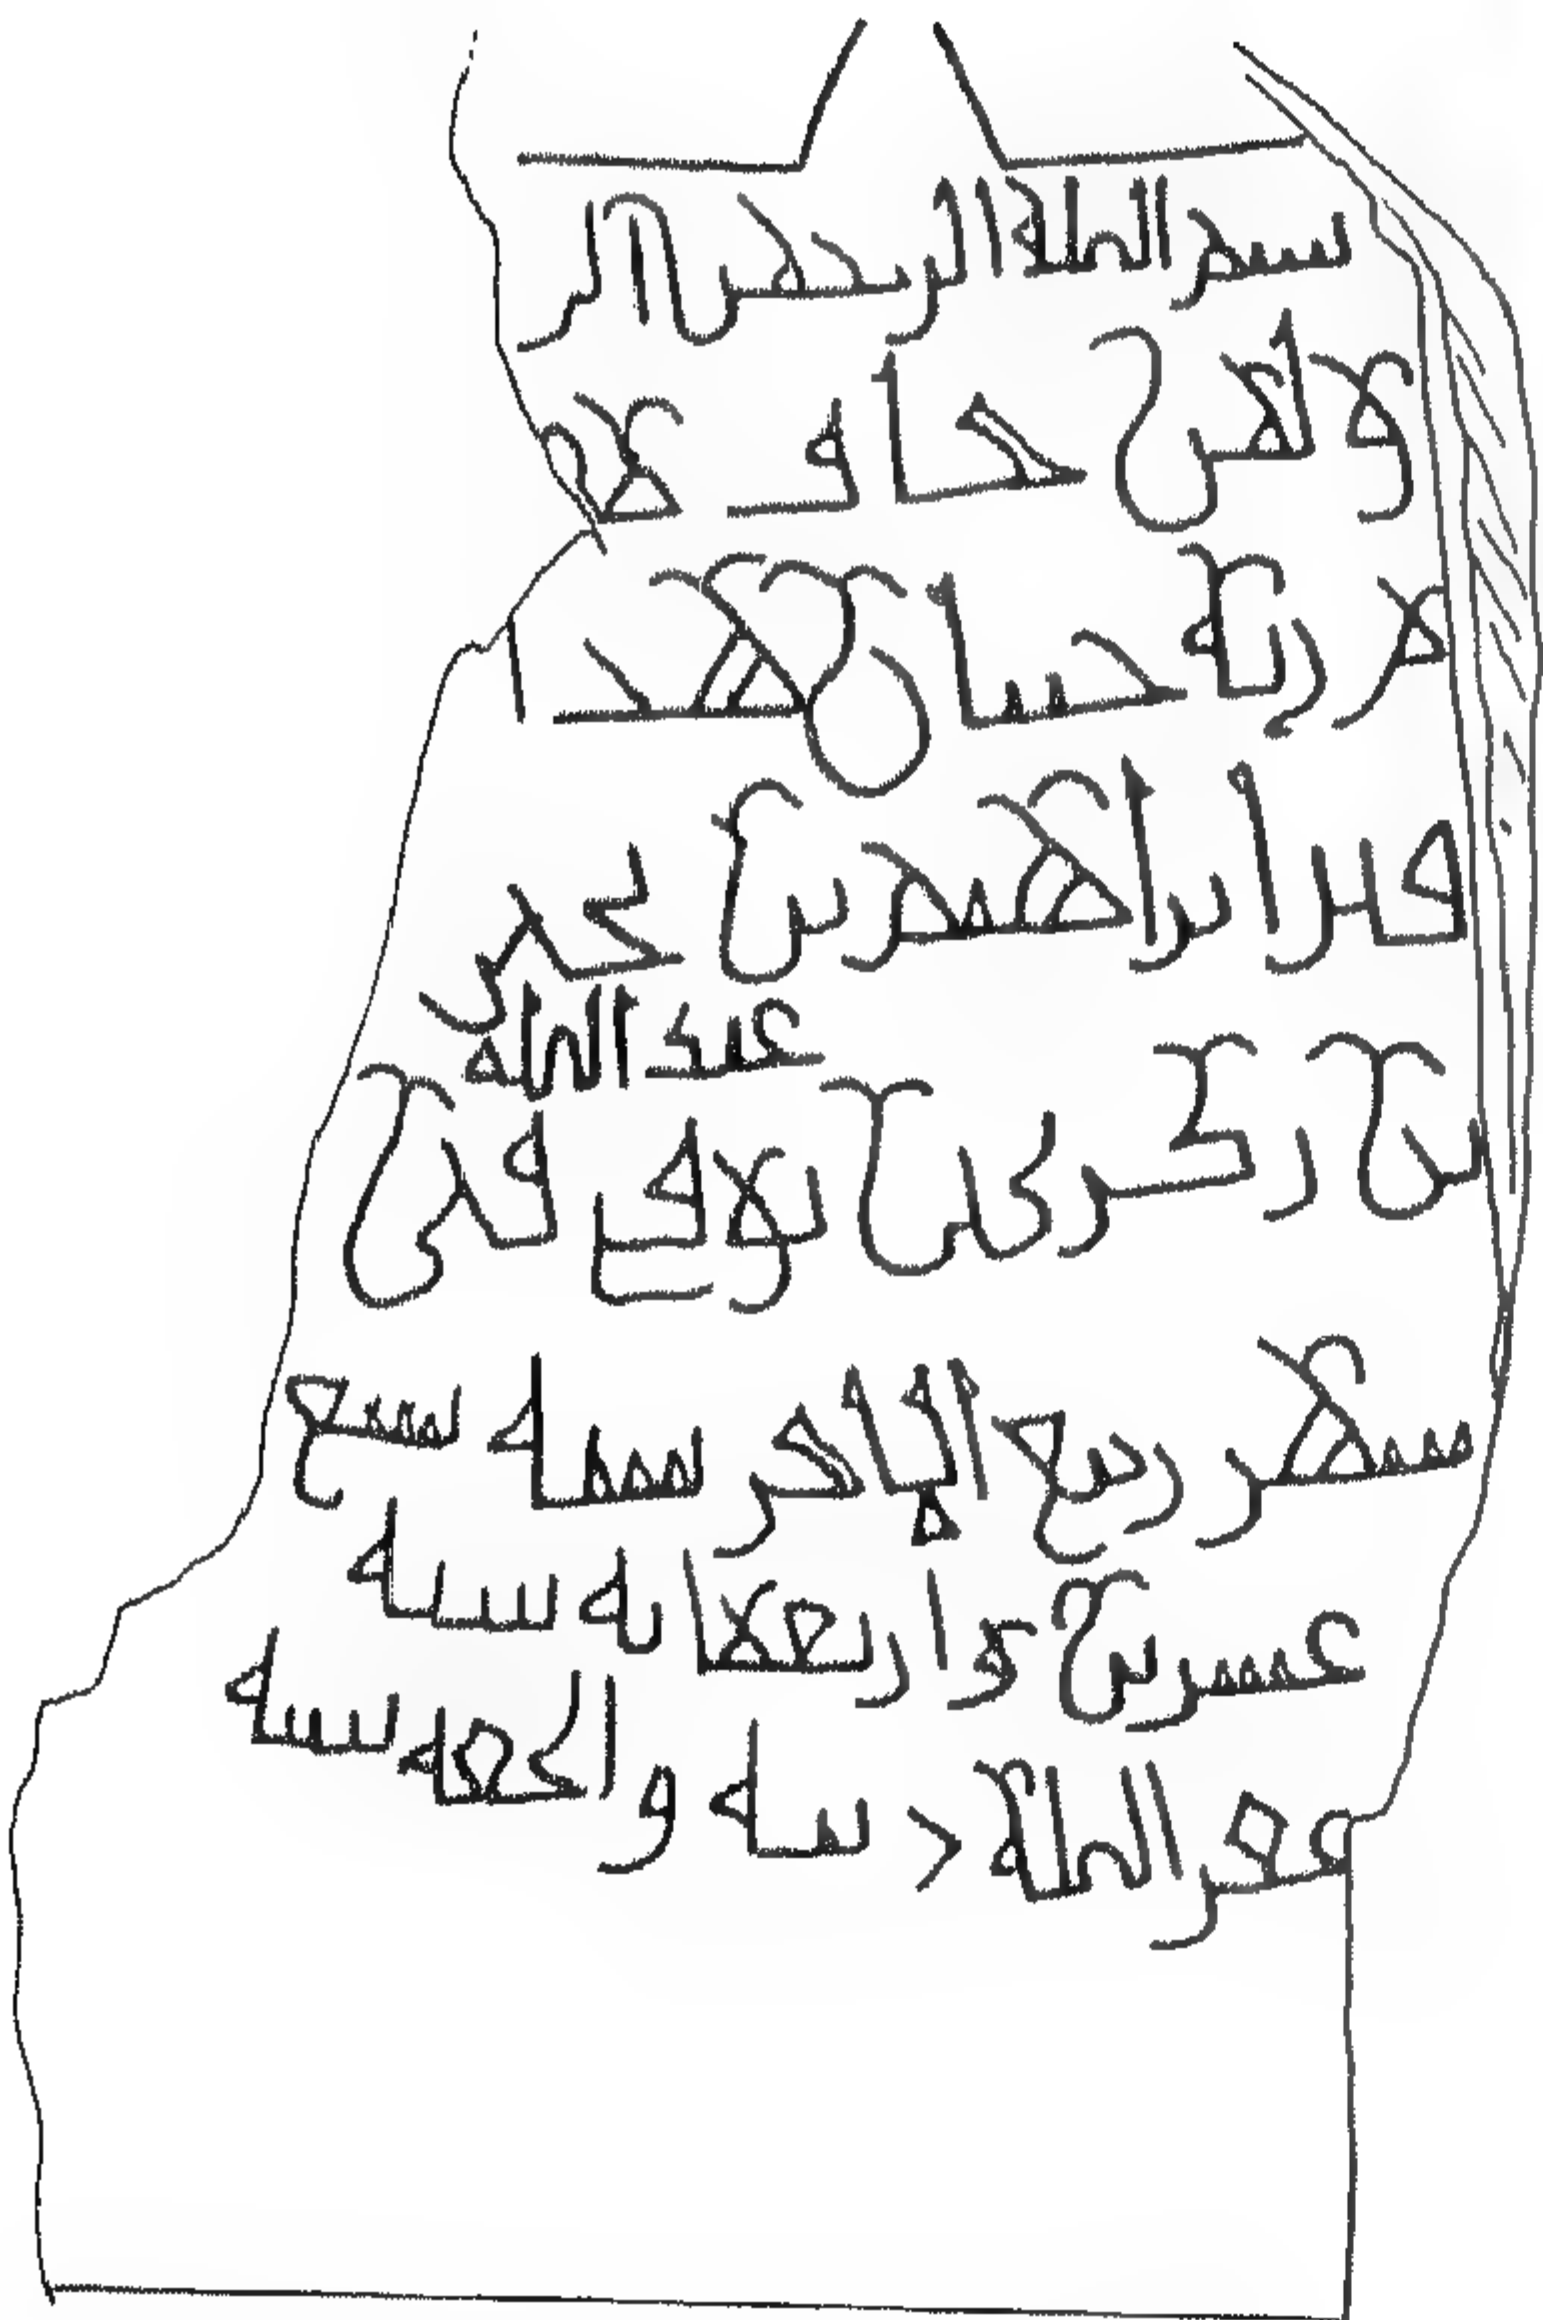 بسم الله الرحمن الر
ولمن خاف مقا
م ربه جنتان هذا
قبر ابراهيم بن محمد
عبد الله
بن زكري بن توفي في
شهر ربيع الاخر سنه سبع
عشرين و اربعمايه سنه
غفر الله ذنبه و الحقه بنبيه